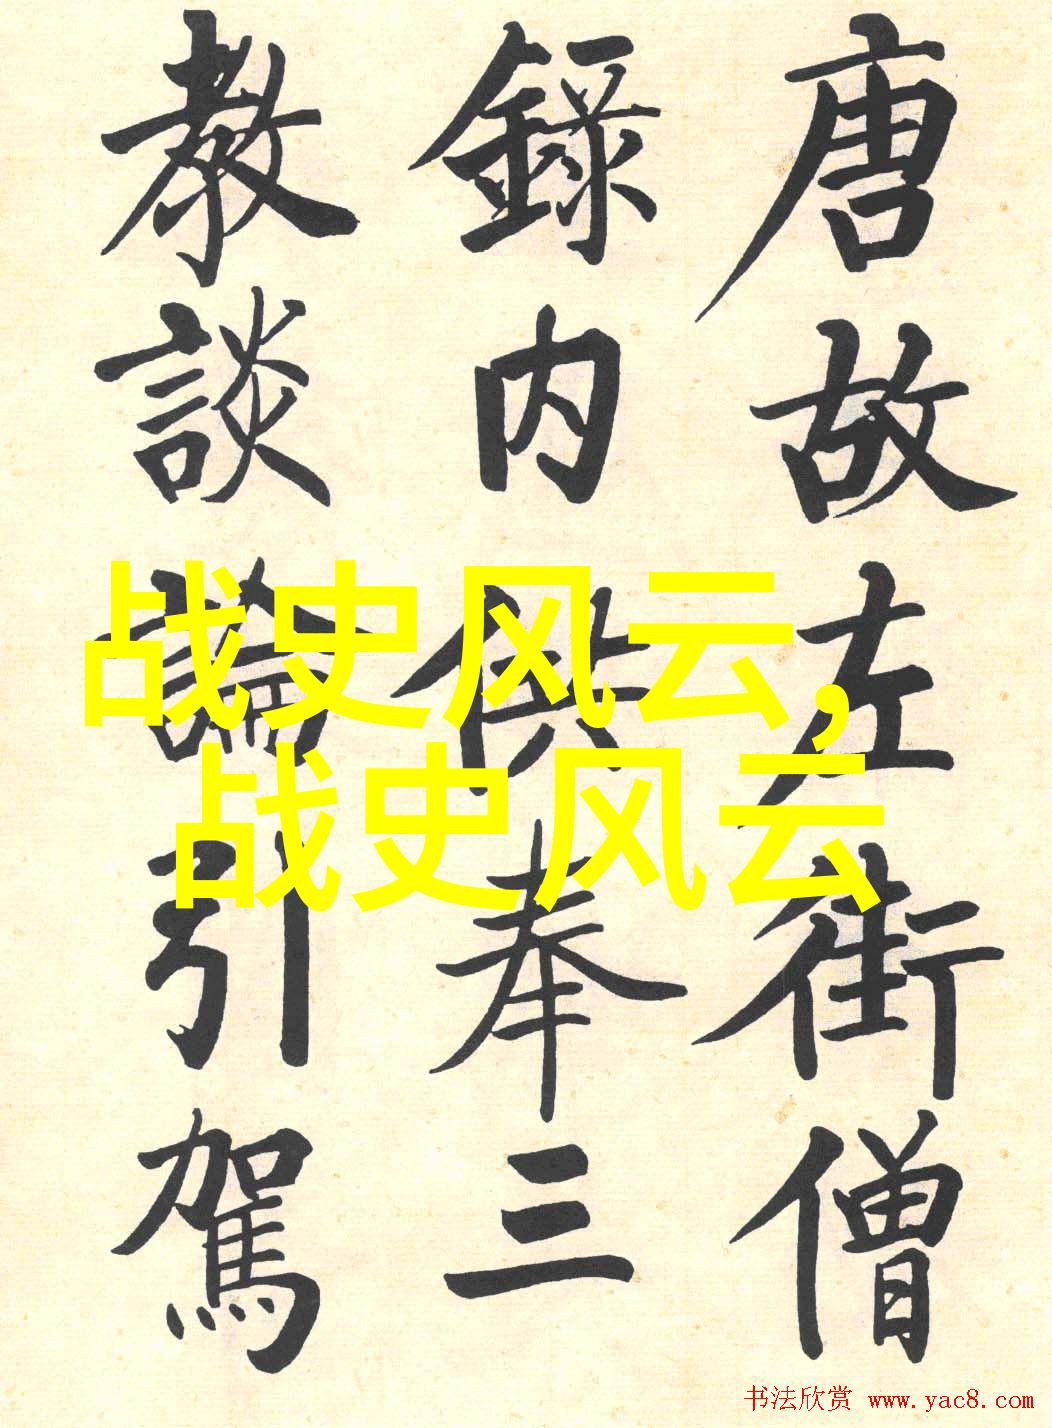 唐故左街僧
錄内供奉三
教談論引駕
战史风云,
战史风云
书法欣赏 www.yac8.com